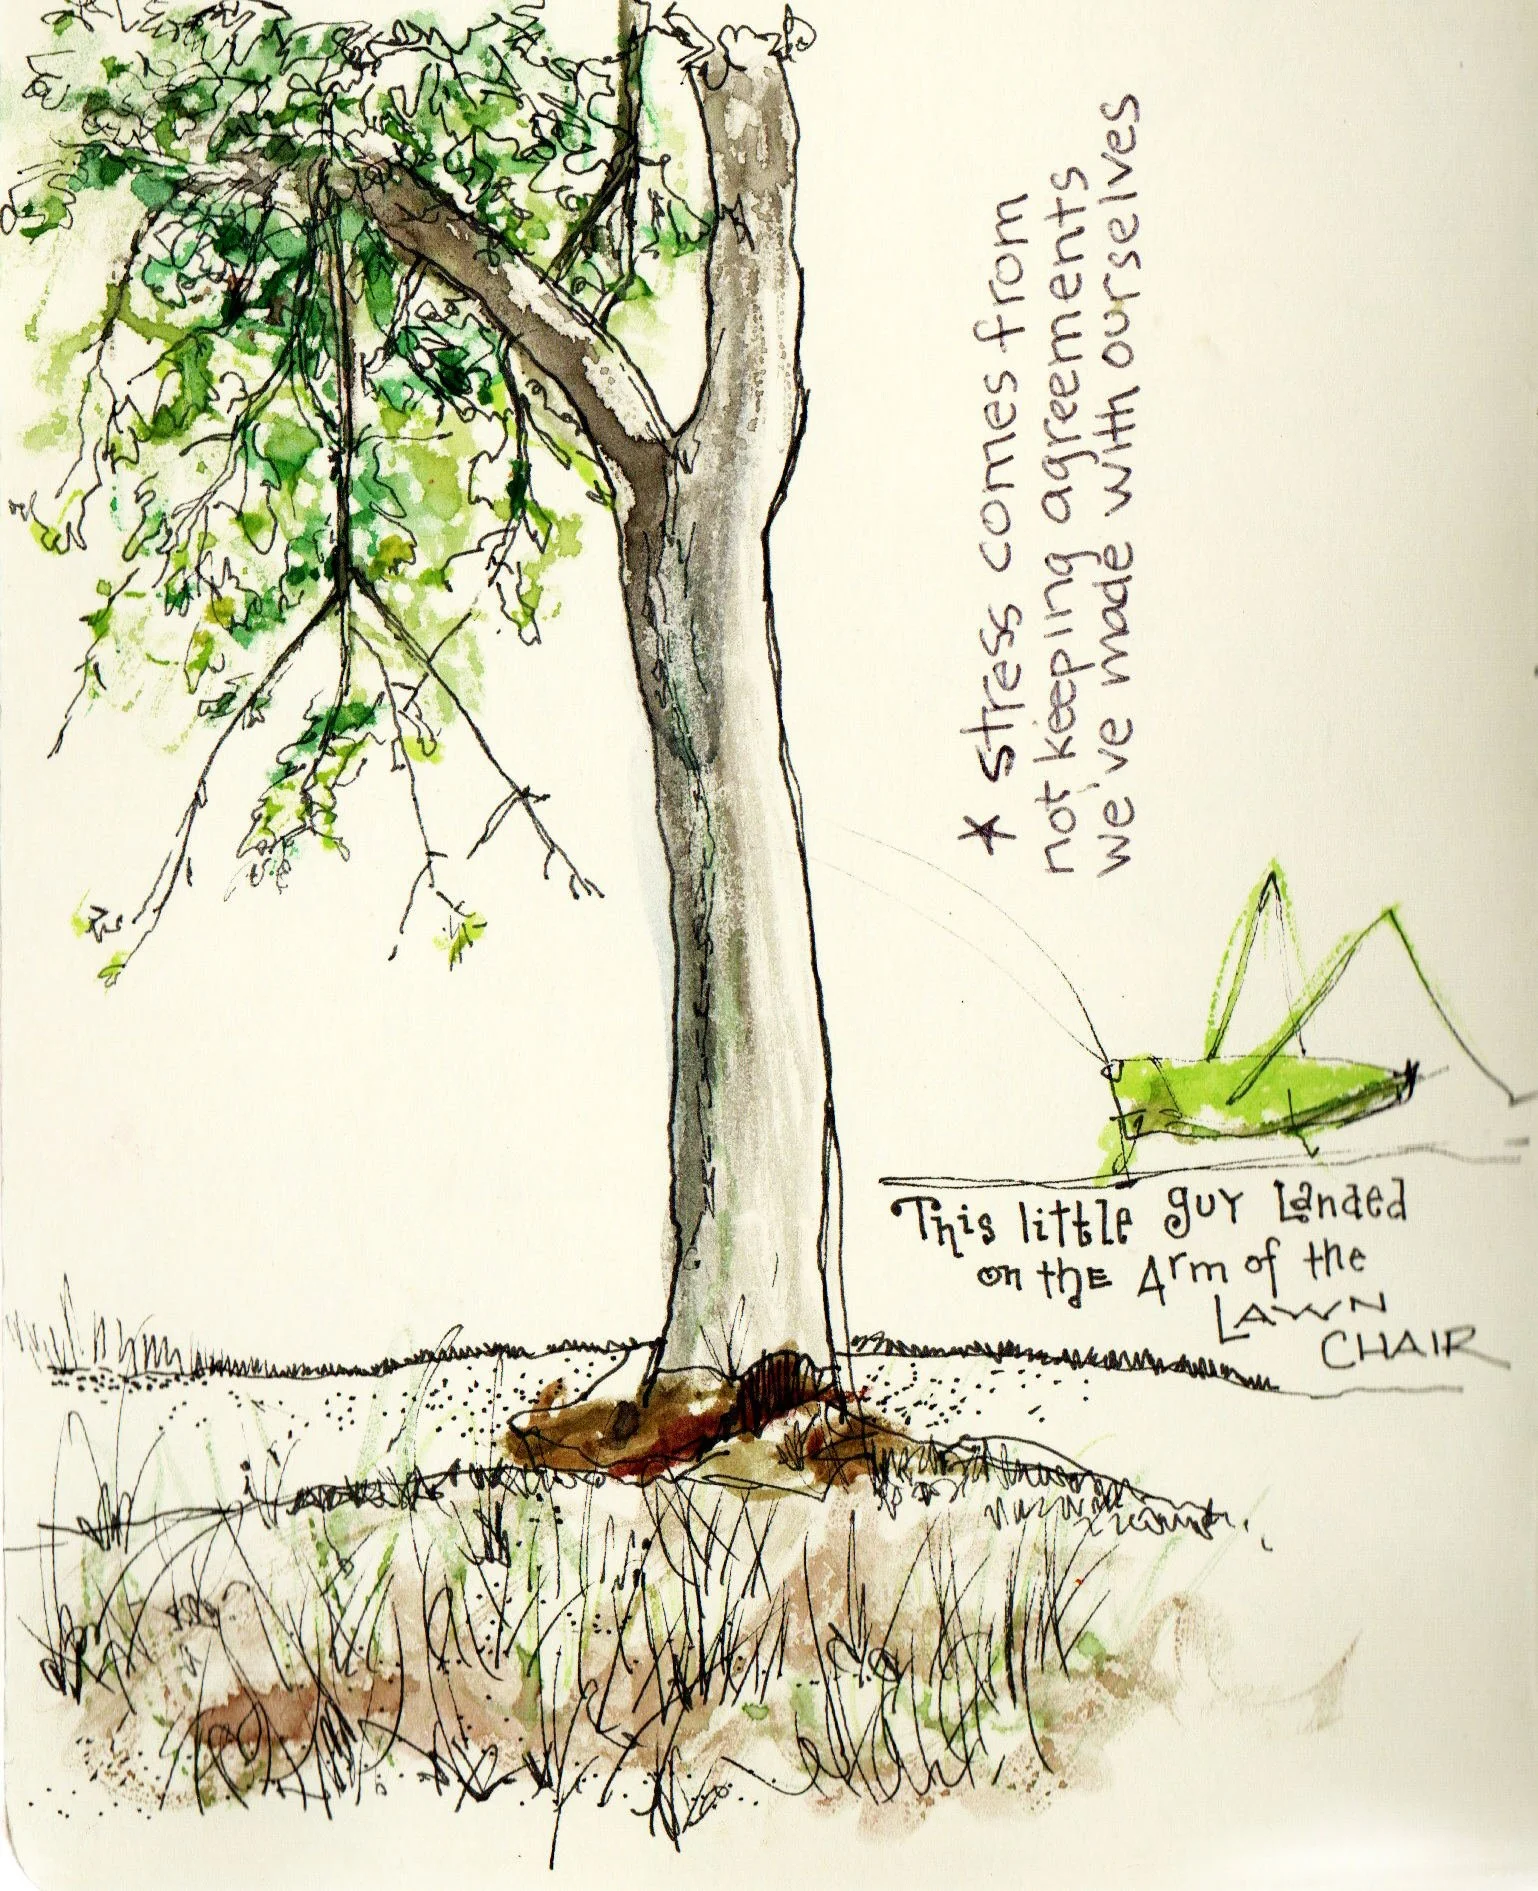 * stress comes from
not keeping agreements
we've made with ourselves
This little guy Landed
on the Arm of the
LAWN
CHAIR